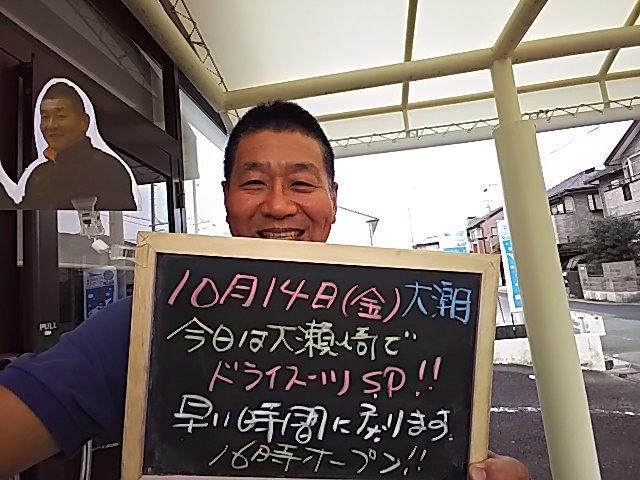 10月14日(金)大潮
今日は大瀬崎で
ドライスーツSP!!
早い時間に戻ります。
16時オープン!!
PULL